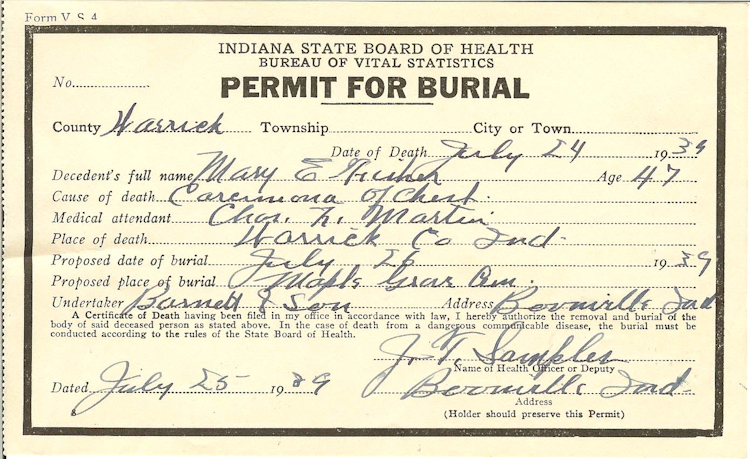 Form V. S. 4
INDIANA STATE BOARD OF HEALTH
BUREAU OF VITAL STATISTICS
No.
PERMIT FOR BURIAL
County Warrick Township City or Town
Date of Death July 24 1939
Decedent's full name Mary E Age 47
Cause of death Carcinoma of Chest
Medical attendant Chas. L. Martin
Place of death Warrick Co Ind
Proposed date of burial July 26 1939
Proposed place of burial Maple Grove Cem.
Undertaker Barnett & Son Address Boonville Ind
A Certificate of Death having been filed in my office in accordance with law, I hereby authorize the removal and burial of the
body of said deceased person as stated above. In the case of death from a dangerous communicable disease, the burial must be
conducted according to the rules of the State Board of Health.
J. T. Samples
Name of Health Officer or Deputy
Dated July 25 1939 Boonville Ind
Address
(Holder should preserve this Permit)